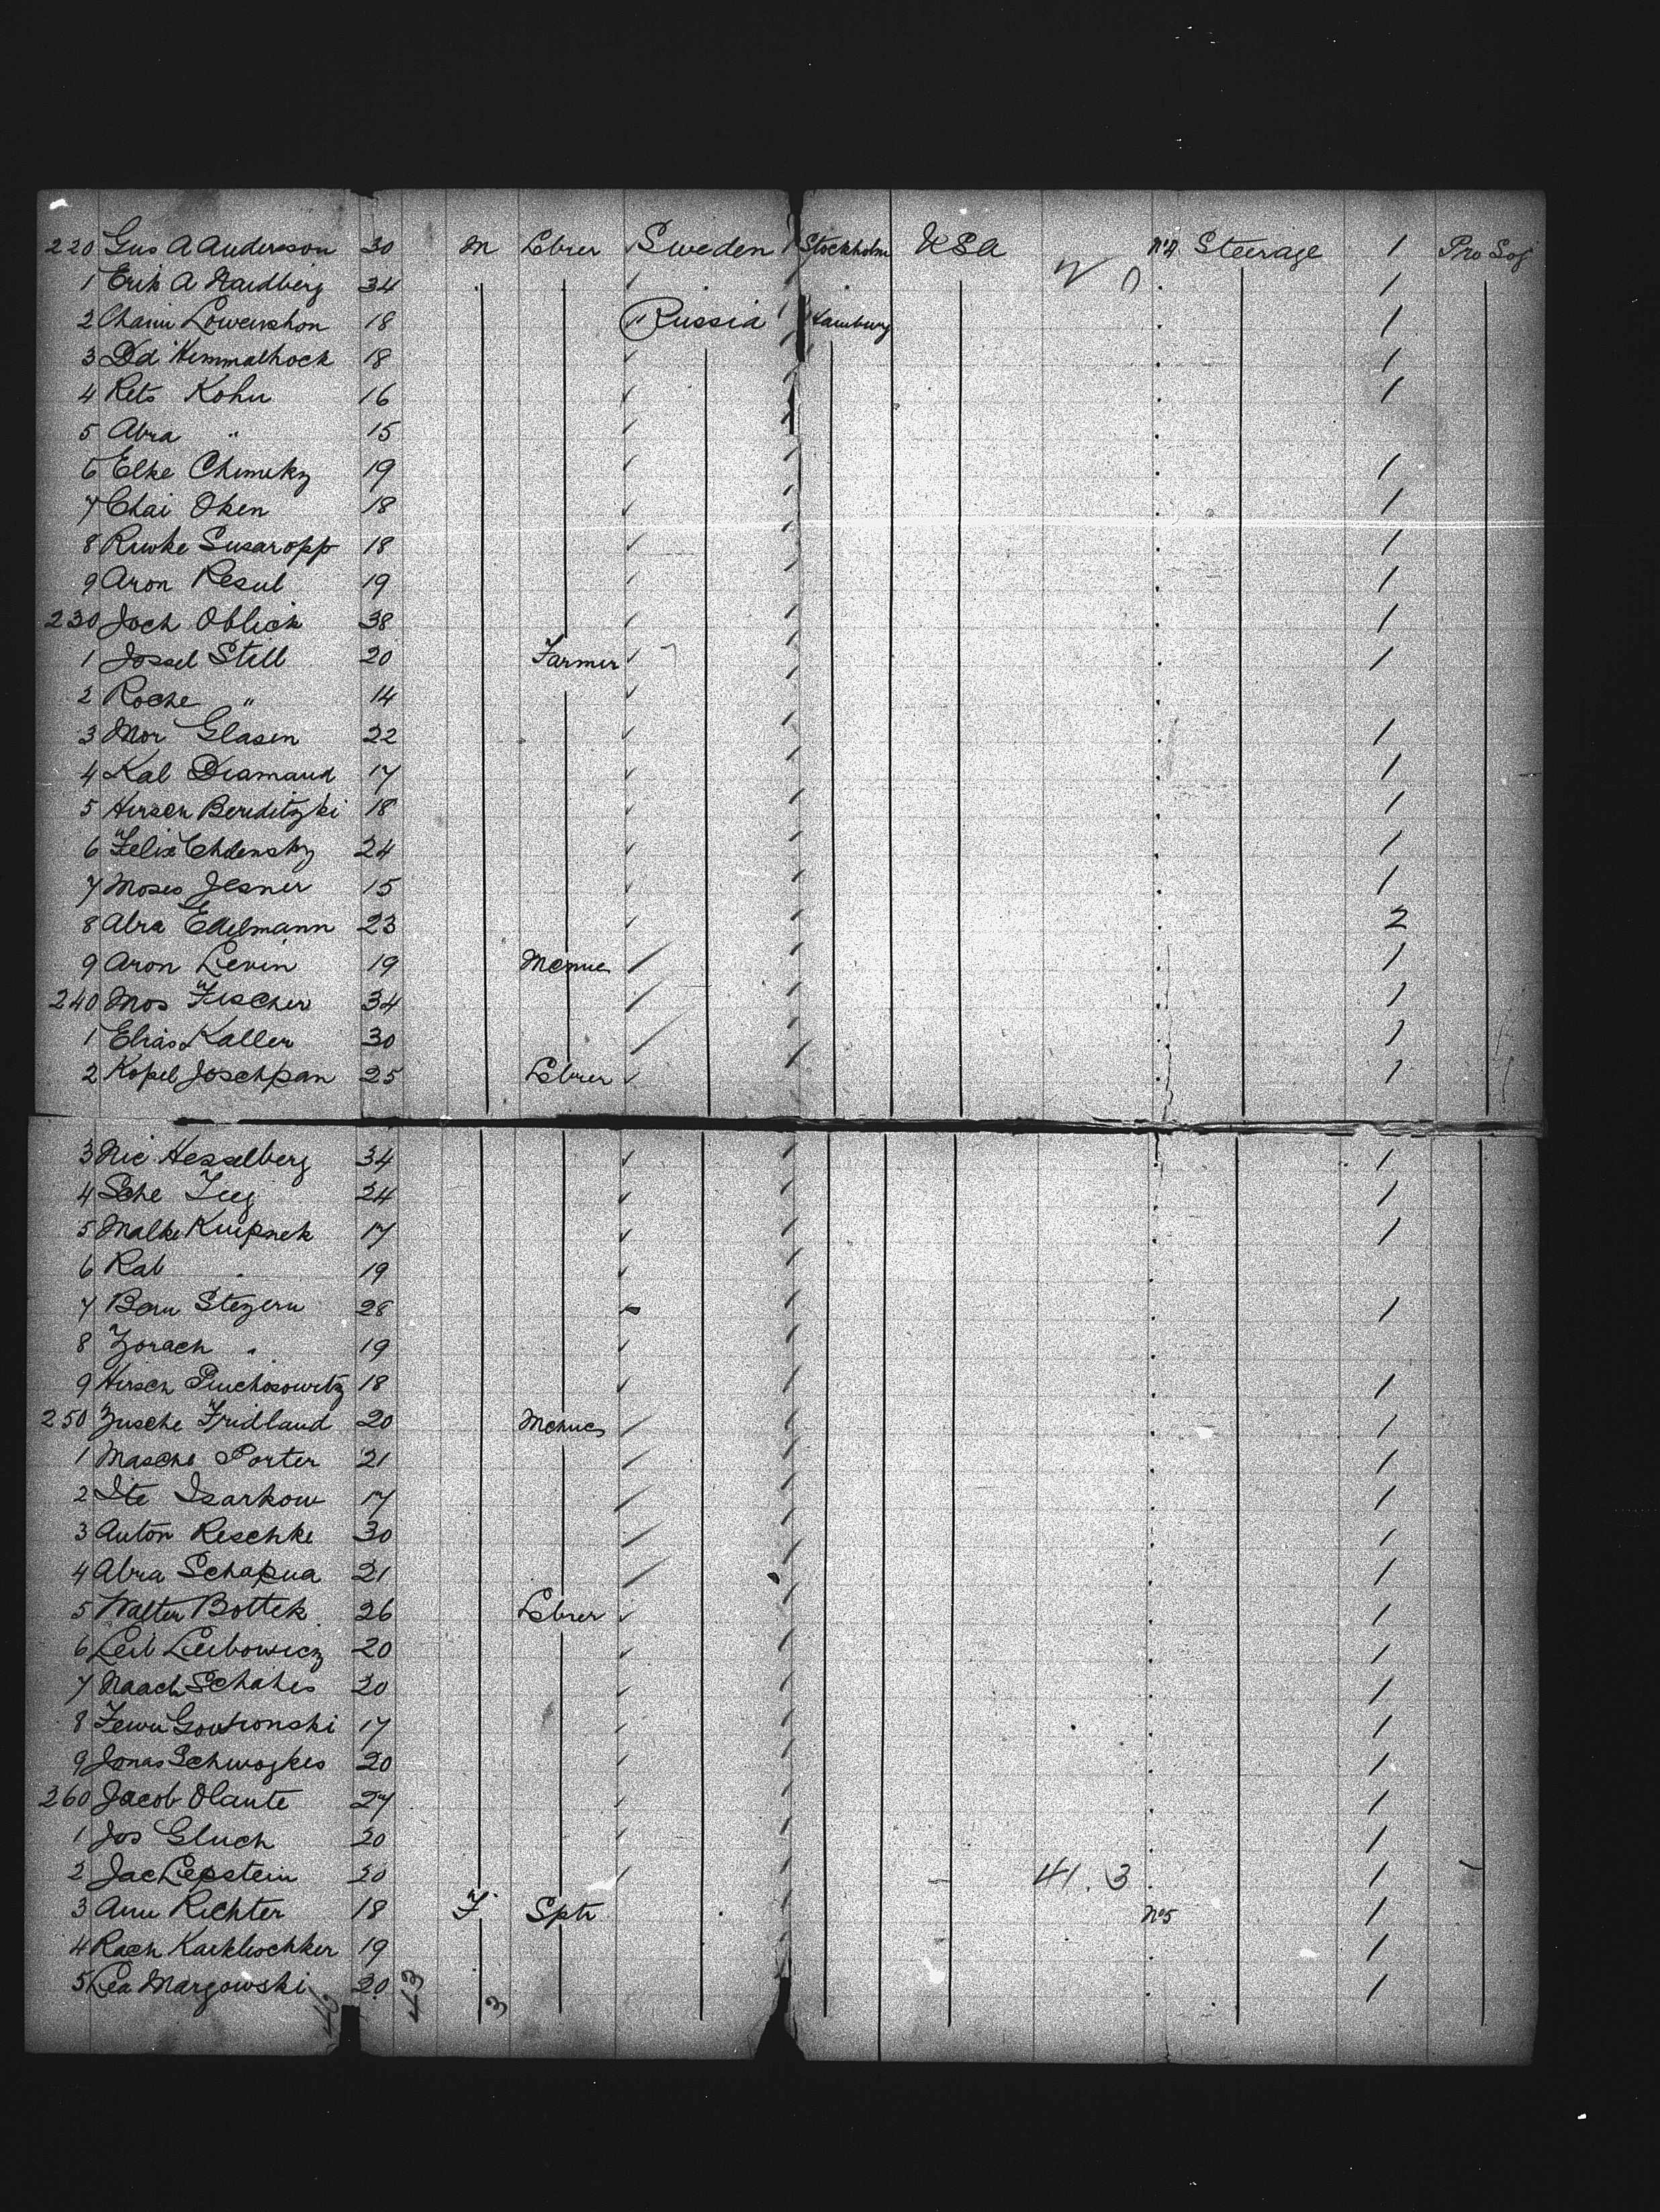 220 Gus A Andersson 30 M Lbrer Sweden Stockholm USA No 4 Steerage 1 Pro Soj
1 Erik A 34 1
2 Chaim 18 Russia Hamburg 1
3 Dd Himmalhock 18 1
4 Rets Kohn 16 1
5 Abra " 15
6 Elke 19 1
7 Chai Oken 18 1
8 Riwke Susaropp 18 1
9 Aron Resul 19 1
230 Joch Oblick 38 1
1 Jossel Still 20 Farmer 1
2 Roche " 14
3 Mor Glasen 22 1
4 Kal Diamand 17 1
5 Hirsch Berditzki 18 1
6 Felix 24 1
7 Moses Jesner 15 1
8 Abra Edelmann 23 2
9 Aron Levin 19 1
240 Mos Fischer 34 1
1 Elias Kaller 30 1
2 Kopel Joschpan 25 Lbrer 1
3 Nic Hesselberg 34 1
4 Sche 24 1
5 Malke 17 1
6 Rab " 19
7 Stezern 28 1
8 Zorach " 19
9 Hirsch Pinchosowitz 18 1
250 Zusche Fridland 20 1
1 Masche Porter 21 1
2 Ite Isarkow 17 1
3 Anton Reschke 30 1
4 Abra 21 1
5 Walter Bottek 26 Lbrer 1
6 Leib Leibowicz 20 1
7 Schahes 20 1
8 17 1
9 Jonas 20 1
260 Jacob Olante 27 1
1 Jos Gluch 20 1
2 Jac Lepstein 20 41. 3 1
3 Ann Richter 18 F Sptr No 5 1
4 Rach 19 1
5 Lea Margowski 20 1
46 43 3